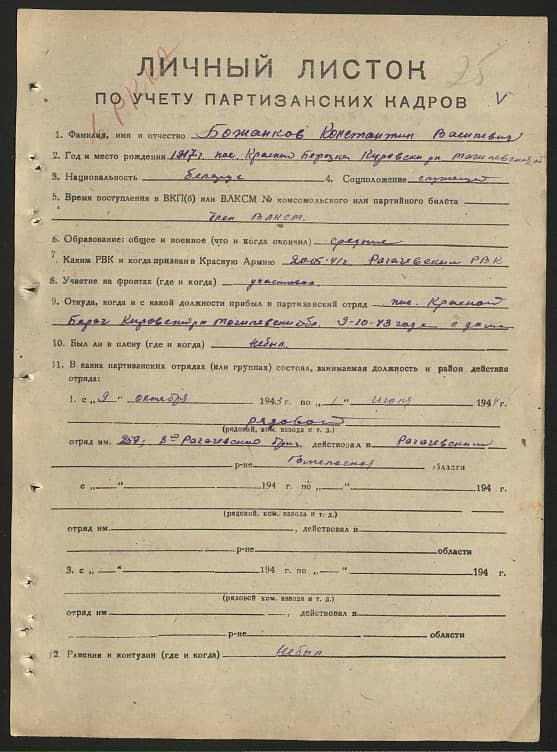 25
ЛИЧНЫЙ ЛИСТОК
ПО УЧЕТУ ПАРТИЗАНСКИХ КАДРОВ V
1. Фамилия, имя и отчество Божанков Константин Васильевич
2. Год и место рождения 1917 г. пос. Красный Кировский р-н Могилевской
3. Национальность белорус 4. Соцположение служащий
5. Время поступления в ВКП(б) или ВЛКСМ № комсомольского или партийного билета
Член ВЛКСМ.
6. Образование: общее и военное (что и когда окончил) среднее
7. Каким РВК и когда призван в Красную Армию 20-05-41г. Рагачевским РВК
8. Участие на фронтах (где и когда) участвовал
9. Откуда, когда и с какой должности прибыл в партизанский отряд пос. Красной
Кировский р-н Могилевской обл. 9-10-43 года с дома
10. Был ли в плену (где и когда) Небыл.
11. В каких партизанских отрядах (или группах) состоял, занимаемая должность и район действия
отряда:
1. с „9“ октября 1943 г. по „1“ 1944 г.
рядовой
(рядовой, ком. взвода и т. д.)
отряд им. 259; 8ой Рагачевской бриг, действовал в Рагачевским
р-не Гомельской области
с „ “ 194 г. по „ “ 194 г.
(рядовой, ком. взвода и т. д.)
отряд им. , действовал в
р-не области
3. с „ “ 194 г. по „ “ 194 г.
(рядовой, ком. взвода и т. д.)
отряд им , действовал в
р-не области
12. Ранения и контузии (где и когда) Небыл